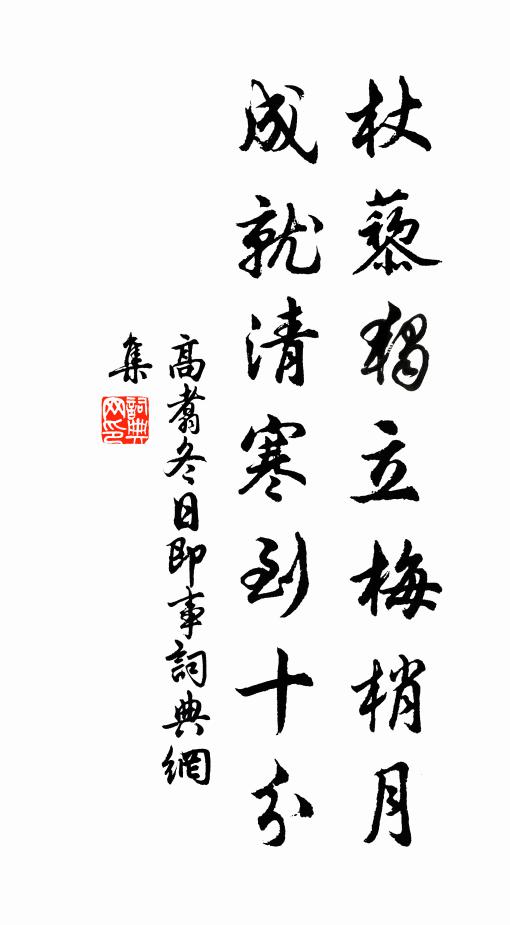 杖藜獨立梅梢月
成就清寒到十分
高翥冬日即事詞典網
集
詞典網印